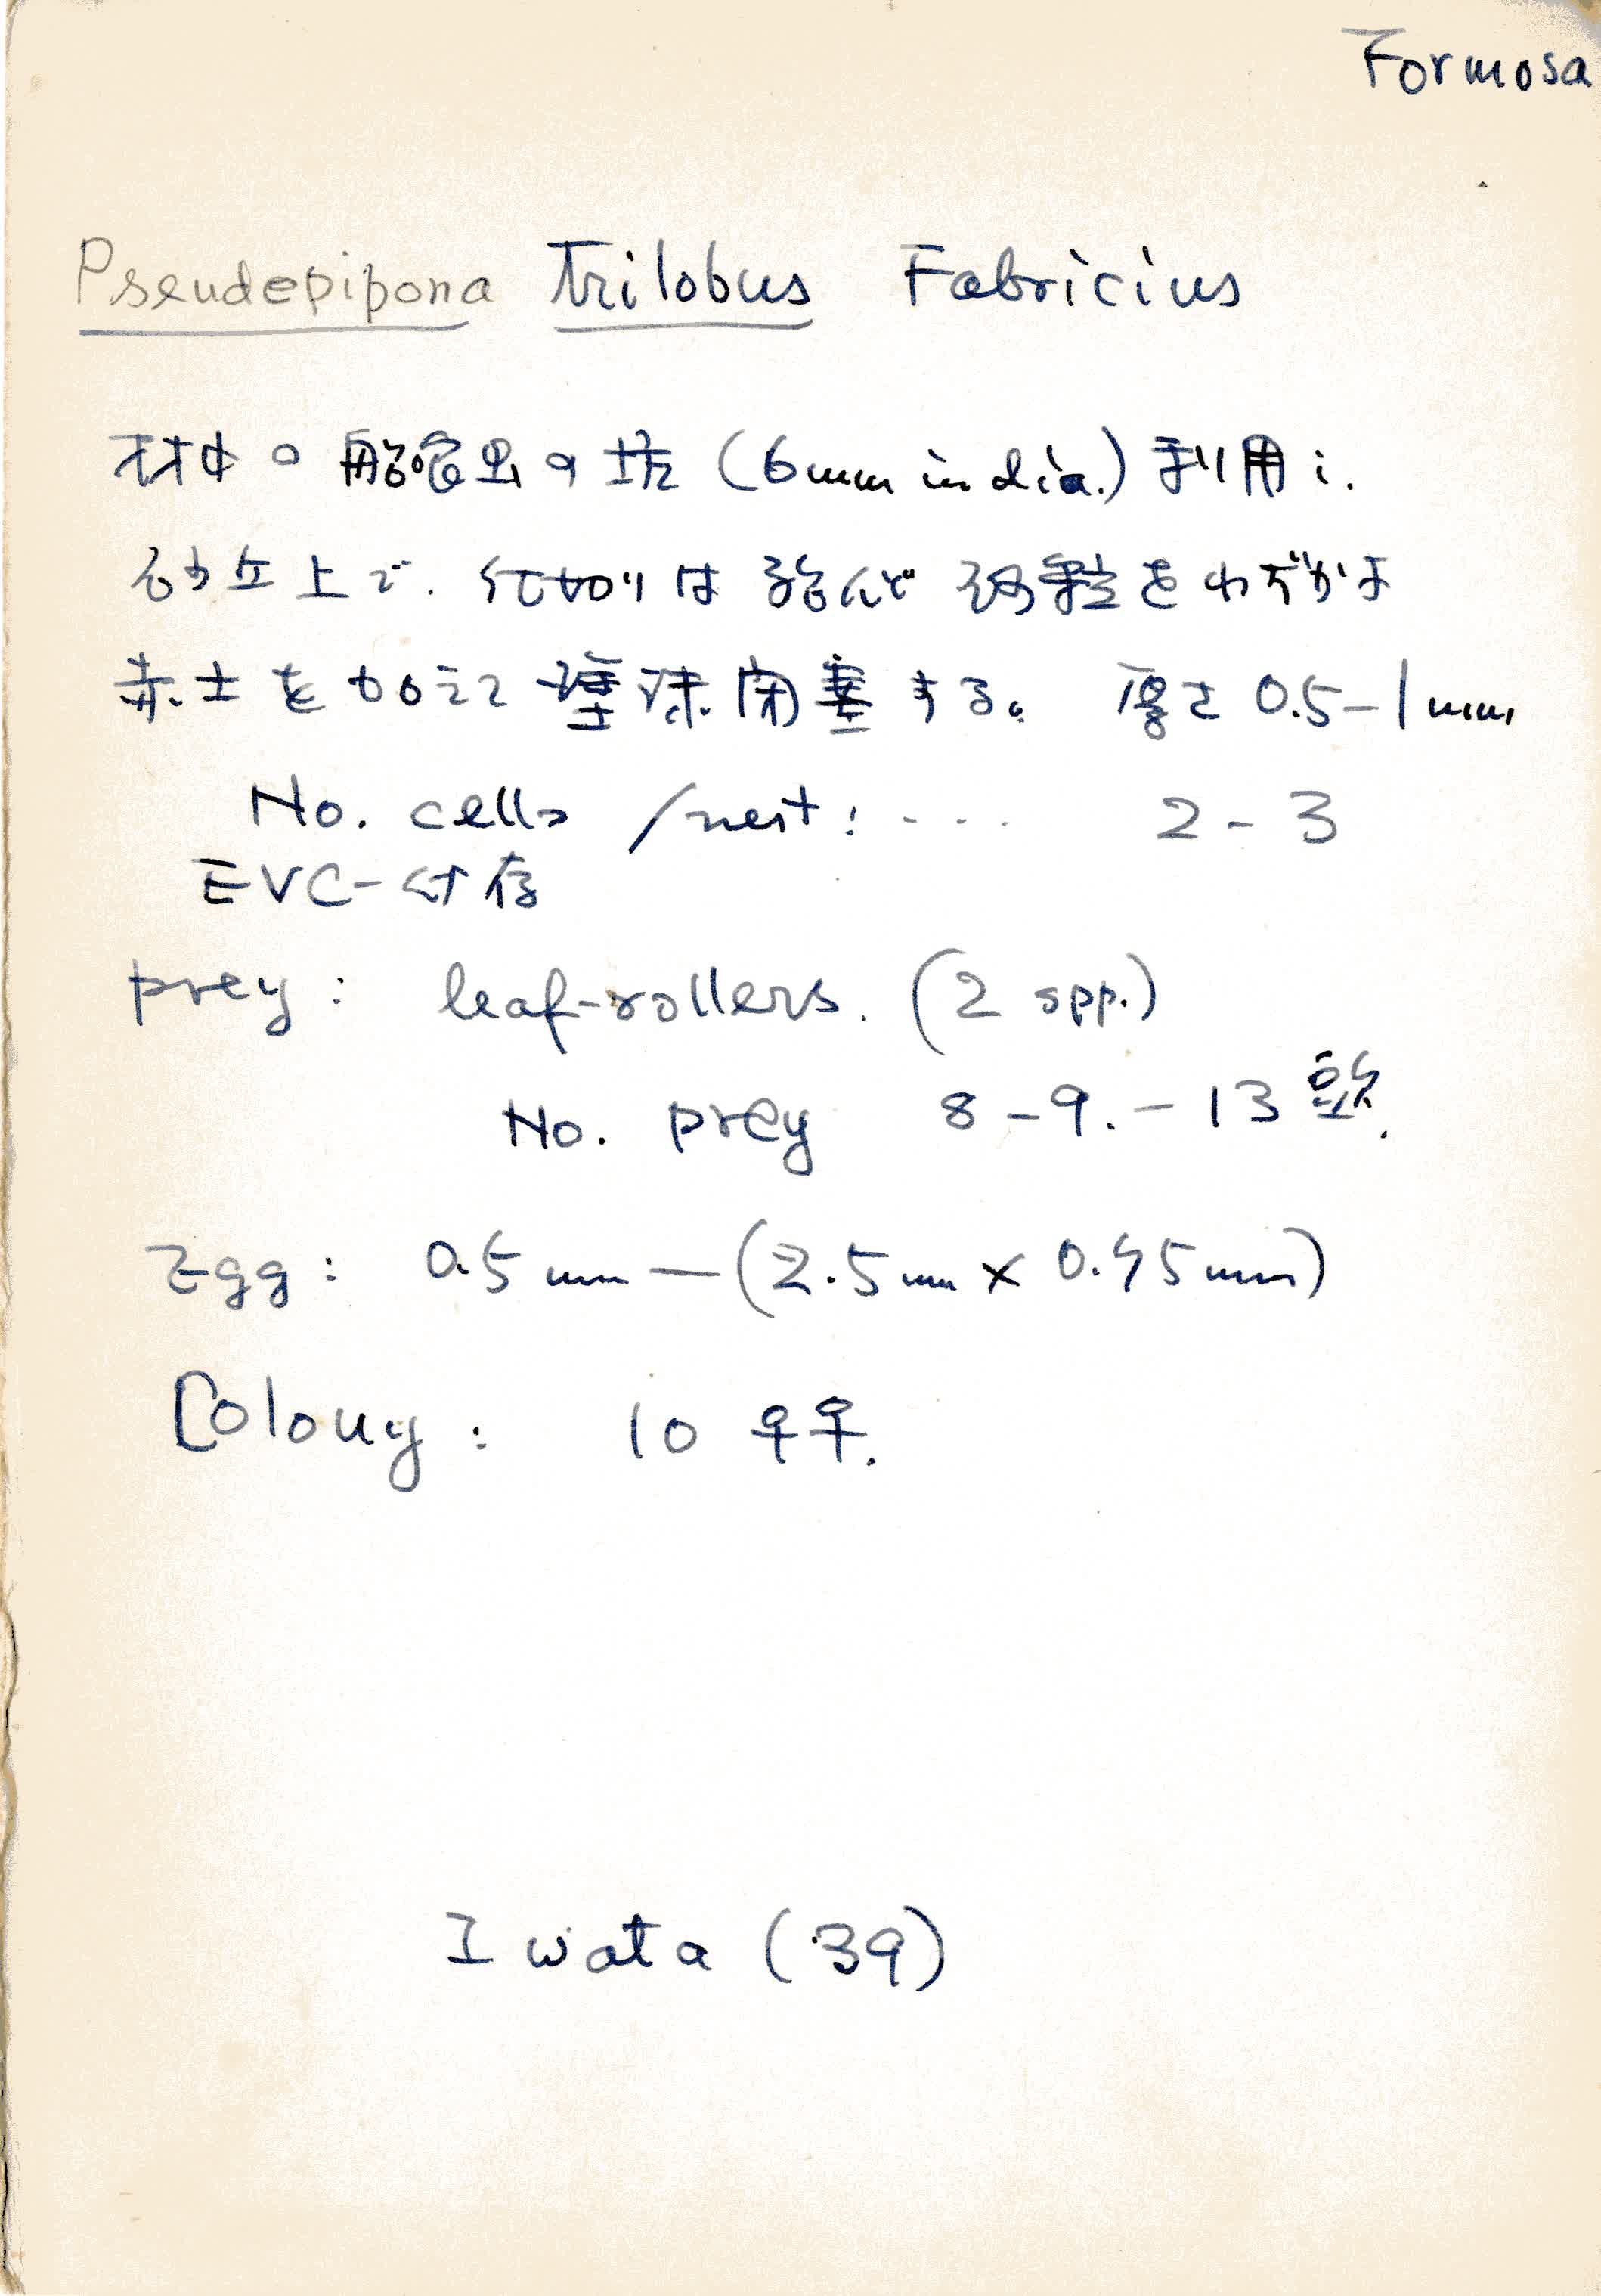 Formosa
Pseudepipona trilobus Fabricius
材中の 船喰虫の坑 (6mm in dia.) 利用;
上で. 仕切りは 殆んど をわずかな
赤土を加えて 閉塞する。 厚さ 0.5-1mm
No. cells /nest: ... 2-3
EVC-付存
prey: leaf-rollers. (2 spp.)
No. prey 8-9.-13 頭.
Egg: 0.5mm—(2.5mm x 0.45mm)
Colony: 10 ♀♀.
Iwata (39)